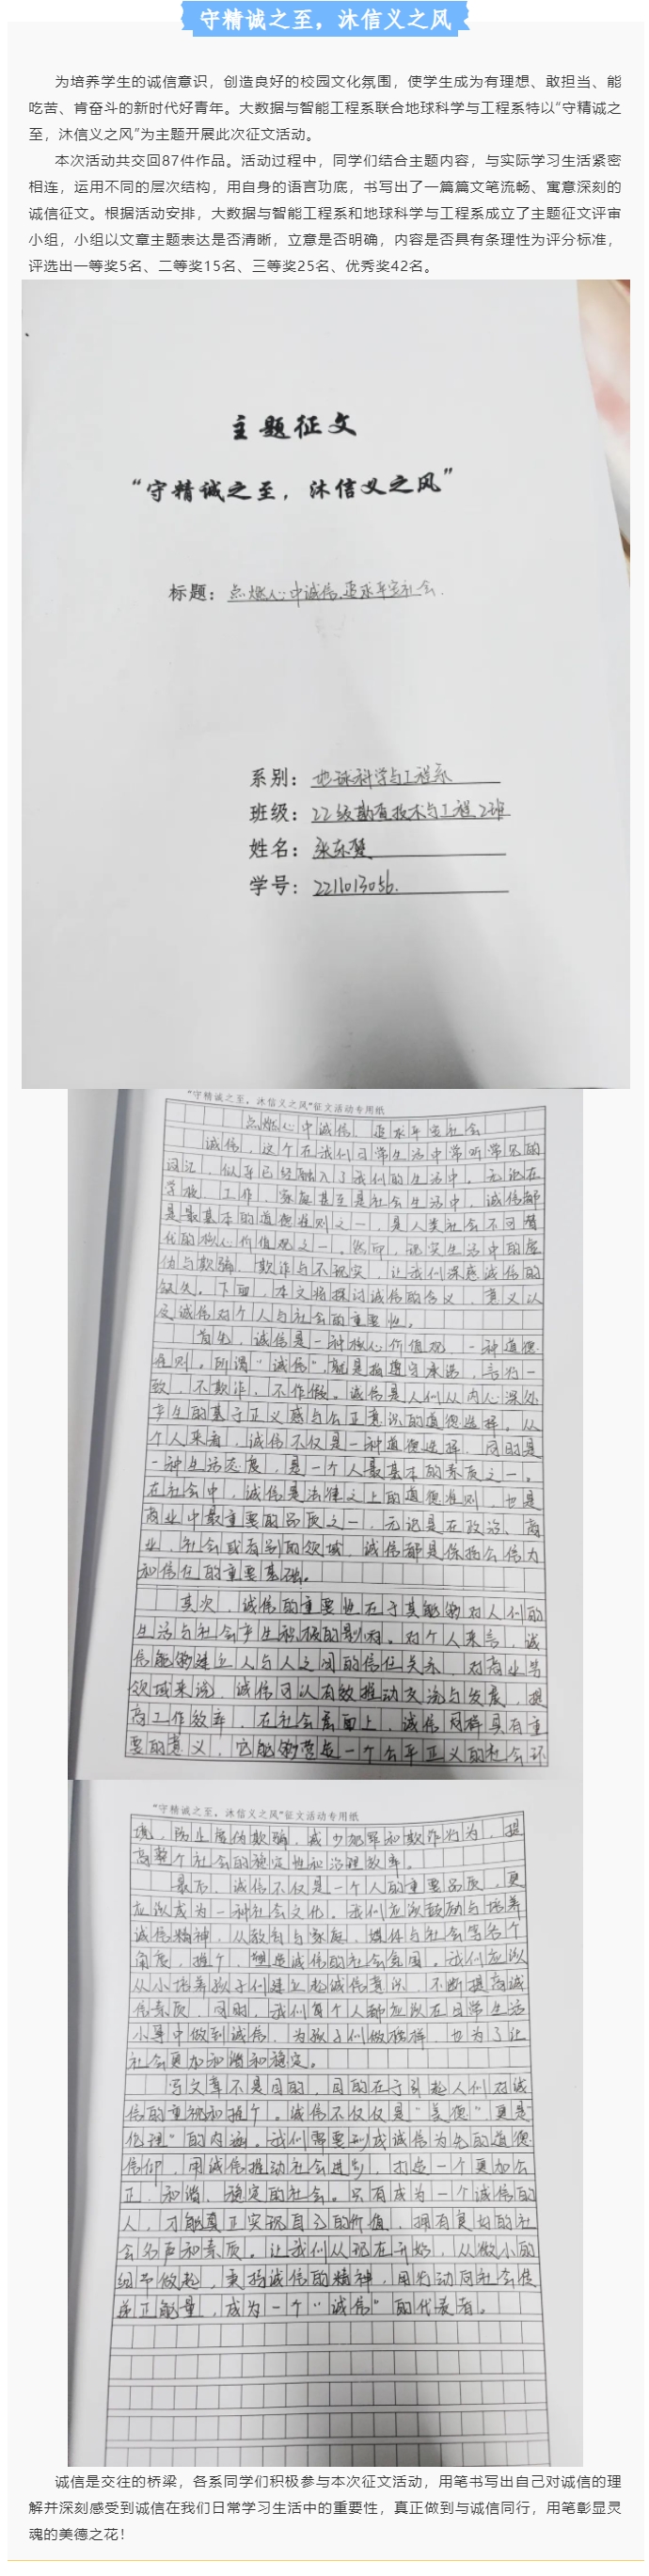 守精诚之至，沐信义之风
为培养学生的诚信意识，创造良好的校园文化氛围，使学生成为有理想、敢担当、能
吃苦、肯奋斗的新时代好青年。大数据与智能工程系联合地球科学与工程系特以“守精诚之
至，沐信义之风”为主题开展此次征文活动。
本次活动共交回87件作品。活动过程中，同学们结合主题内容，与实际学习生活紧密
相连，运用不同的层次结构，用自身的语言功底，书写出了一篇篇文笔流畅、寓意深刻的
诚信征文。根据活动安排，大数据与智能工程系和地球科学与工程系成立了主题征文评审
小组，小组以文章主题表达是否清晰，立意是否明确，内容是否具有条理性为评分标准，
评选出一等奖5名、二等奖15名、三等奖25名、优秀奖42名。
主题征文
“守精诚之至，沐信义之风”
标题：点燃心中诚信，追求平安社会.
系别：地球科学与工程系
班级：22级勘查技术与工程2班
姓名：张东
学号：2211013056.
“守精诚之至，沐信义之风”征文活动专用纸
点燃心中诚信，追求平安社会
诚信，这个在我们日常生活中常听常见的
词汇，似乎已经融入了我们的生活中。无论在
学校、工作、家庭甚至是社会生活中，诚信都
是最基本的道德准则之一，是人类社会不可替
代的核心价值观之一。然而，现实生活中的虚
伪与欺骗，欺诈与不现实，让我们深感诚信的
缺失。下面，本文将探讨诚信的含义，意义以
及诚信对个人与社会的重要性。
首先，诚信是一种核心价值观，一种道德
准则。所谓“诚信”，就是指遵守承诺，言行一
致，不欺诈，不作假。诚信是人们从内心深处
产生的基于正义感与公正意识的道德选择。从
个人来看，诚信不仅是一种道德选择，同时是
一种生活态度，是一个人最基本的素质之一。
在社会中，诚信是法律之上的道德准则，也是
商业中最重要的品质之一，无论是在政治、商
业、社会或者别的领域，诚信都是保持公信力
和信任的重要基础。
其次，诚信的重要性在于其能够对人们的
生活与社会产生积极的影响。对个人来言，诚
信能够建立人与人之间的信任关系，对商业等
领域来说，诚信可以有效推动交流与发展，提
高工作效率，在社会层面上，诚信同样具有重
要的意义，它能够营造一个公平正义的社会环
“守精诚之至，沐信义之风”征文活动专用纸
境，防止虚伪欺骗，减少犯罪和欺诈行为，提
高整个社会的稳定性和治理效率。
最后，诚信不仅是一个人的重要品质，更
应该成为一种社会文化。我们应该鼓励与培养
诚信精神，从教育与家庭，媒体与社会等各个
角度，推广，塑造诚信的社会氛围。我们应该
从小培养孩子们建立起诚信意识，不断提高诚
信素质，同时，我们每个人都应该在日常生活
小事中做到诚信，为孩子们做榜样，也为了让
社会更加和谐和稳定。
写文章不是目的，目的在于引起人们对诚
信的重视和推广。诚信不仅仅是“美德”，更是“
伦理”的内涵。我们需要形成诚信为先的道德
信仰，用诚信推动社会进步，打造一个更加公
正、和谐、稳定的社会。只有成为一个诚信的
人，才能真正实现自己的价值，拥有良好的社
会名声和素质。让我们从现在开始，从微小的
细节做起，秉持诚信的精神，用行动向社会传
递正能量，成为一个“诚信”的代表者。
诚信是交往的桥梁，各系同学们积极参与本次征文活动，用笔书写出自己对诚信的理
解并深刻感受到诚信在我们日常学习生活中的重要性，真正做到与诚信同行，用笔彰显灵
魂的美德之花！